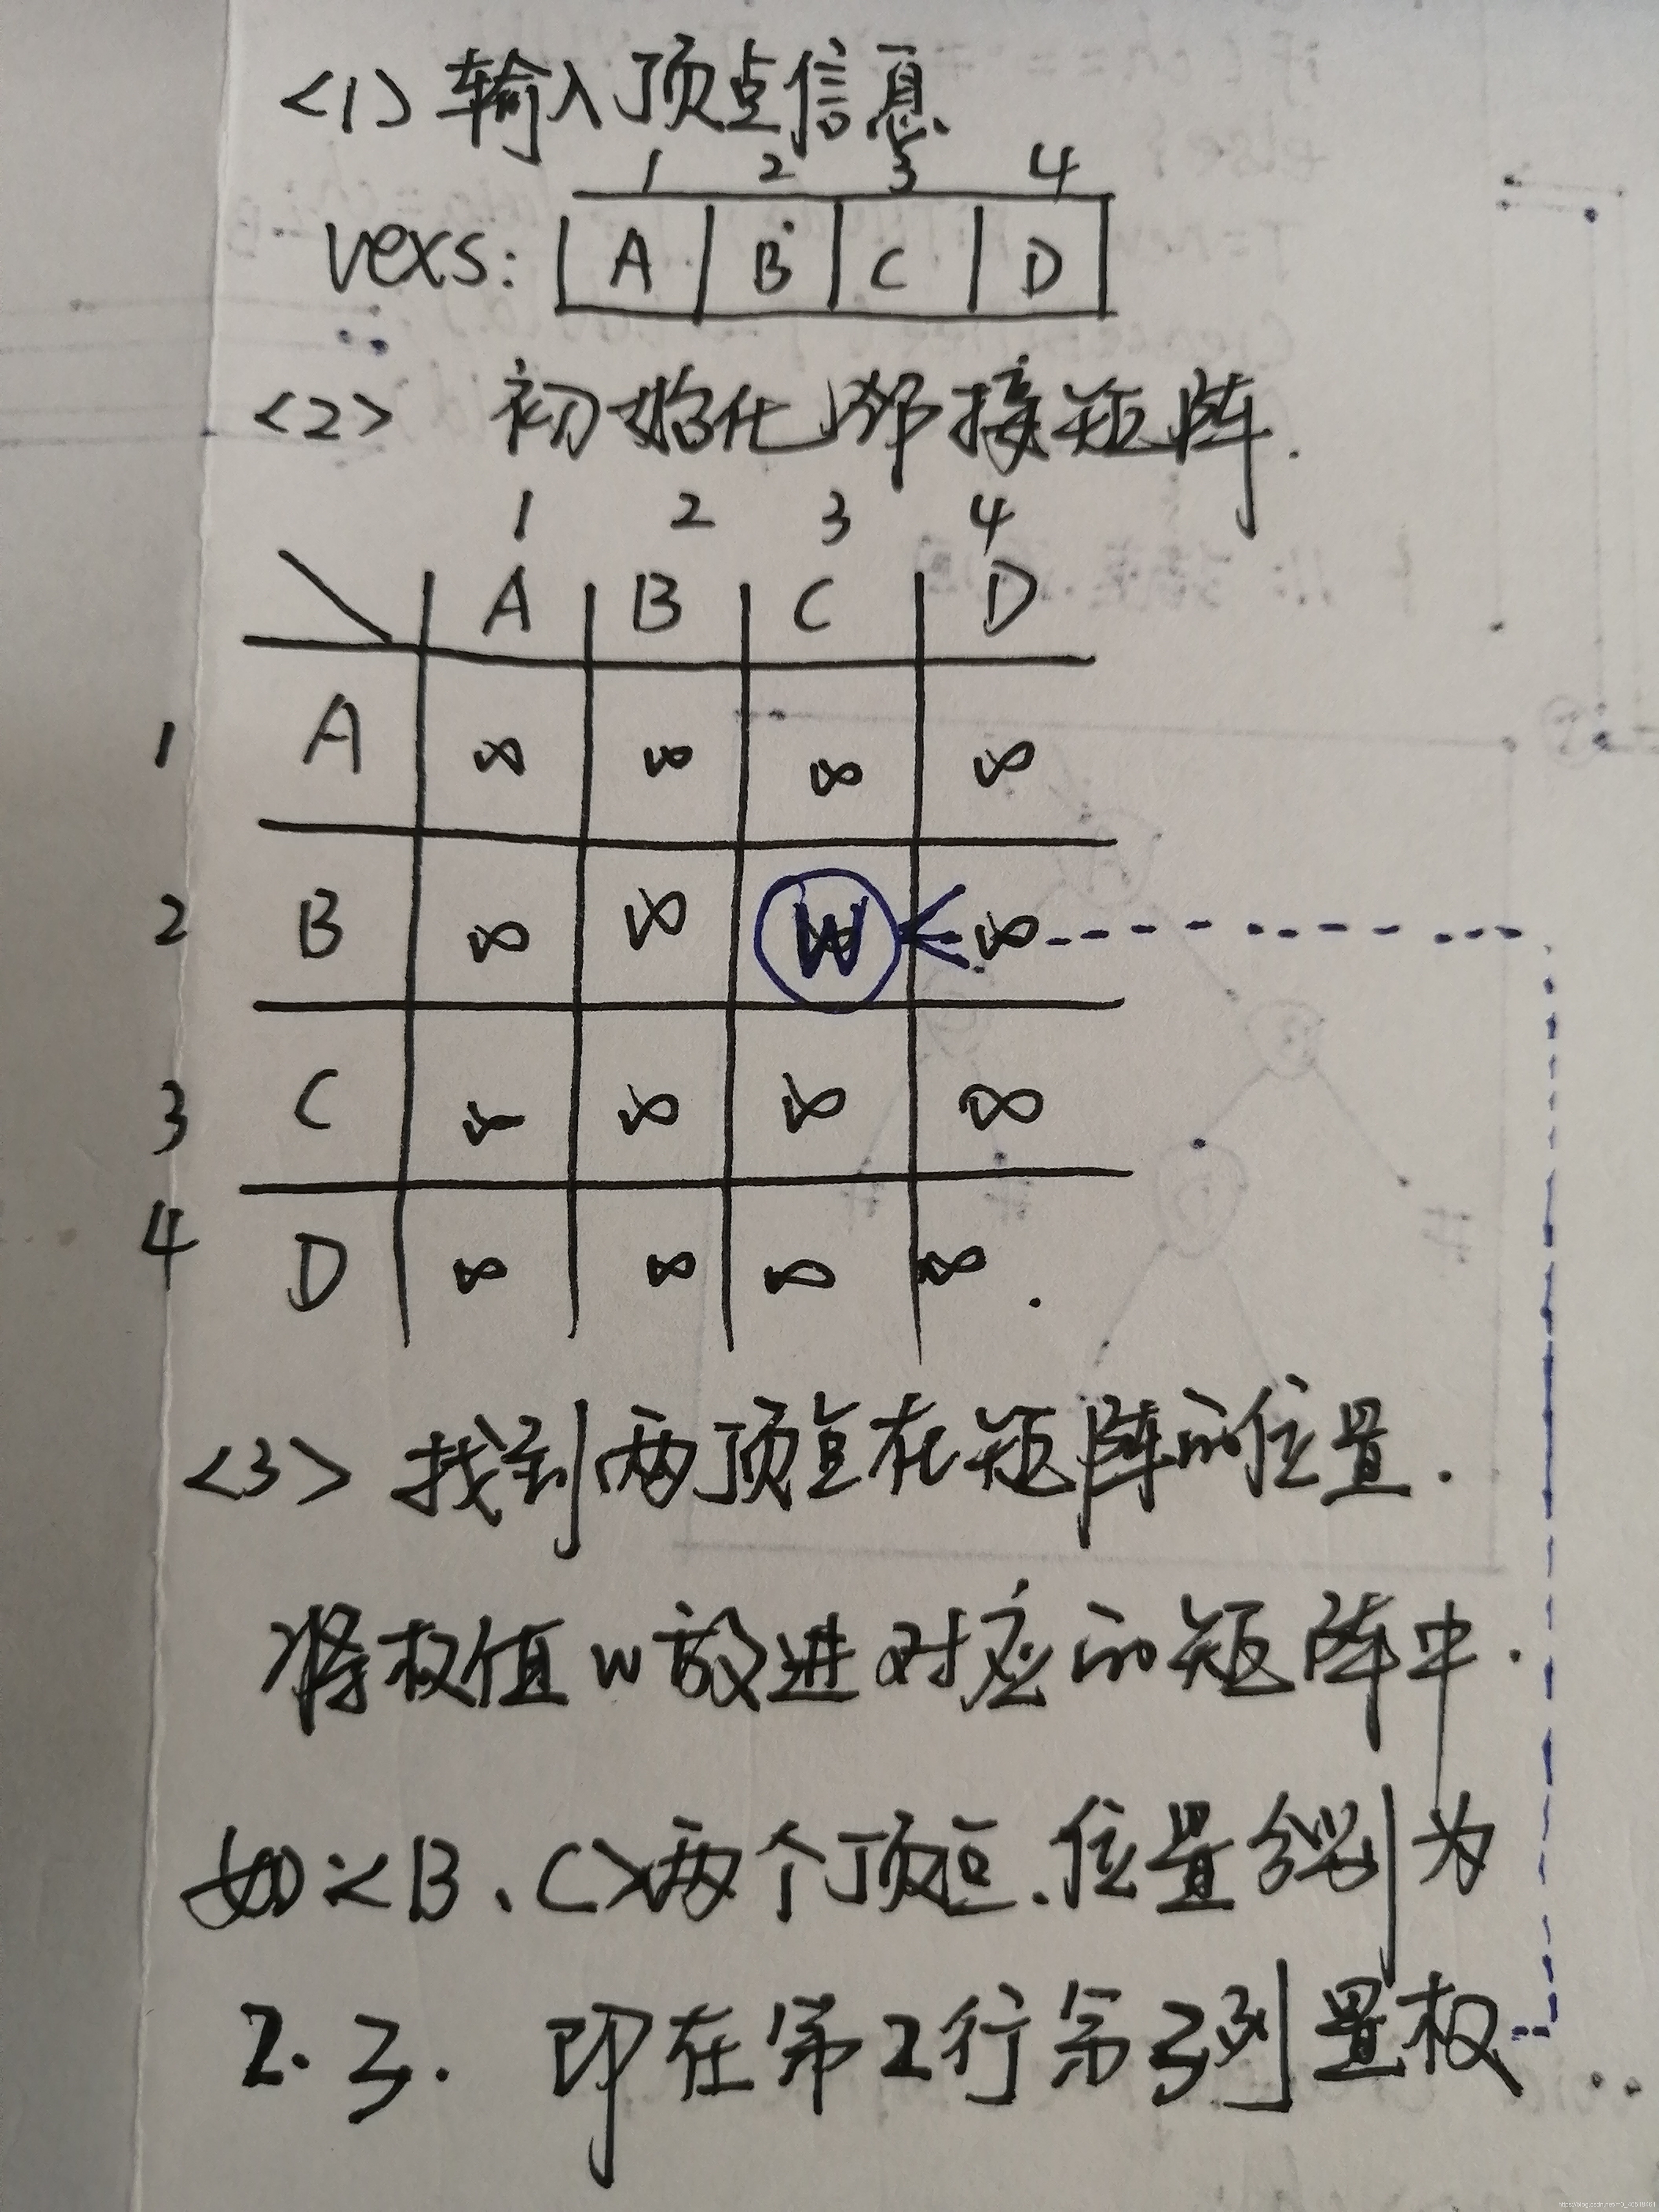 <1> 输入顶点信息
1 2 3 4
vexs: A B C D
<2> 初始化邻接矩阵.
1 2 3 4
A B C D
1 A ∞ ∞ ∞ ∞
2 B ∞ ∞ W ∞
3 C ∞ ∞ ∞ ∞
4 D ∞ ∞ ∞ ∞.
<3> 找到两顶点在矩阵的位置.
将权值w放进对应的矩阵中.
如:<B、C>两个顶点.位置分别为
2. 3. 即在第2行第3列置权